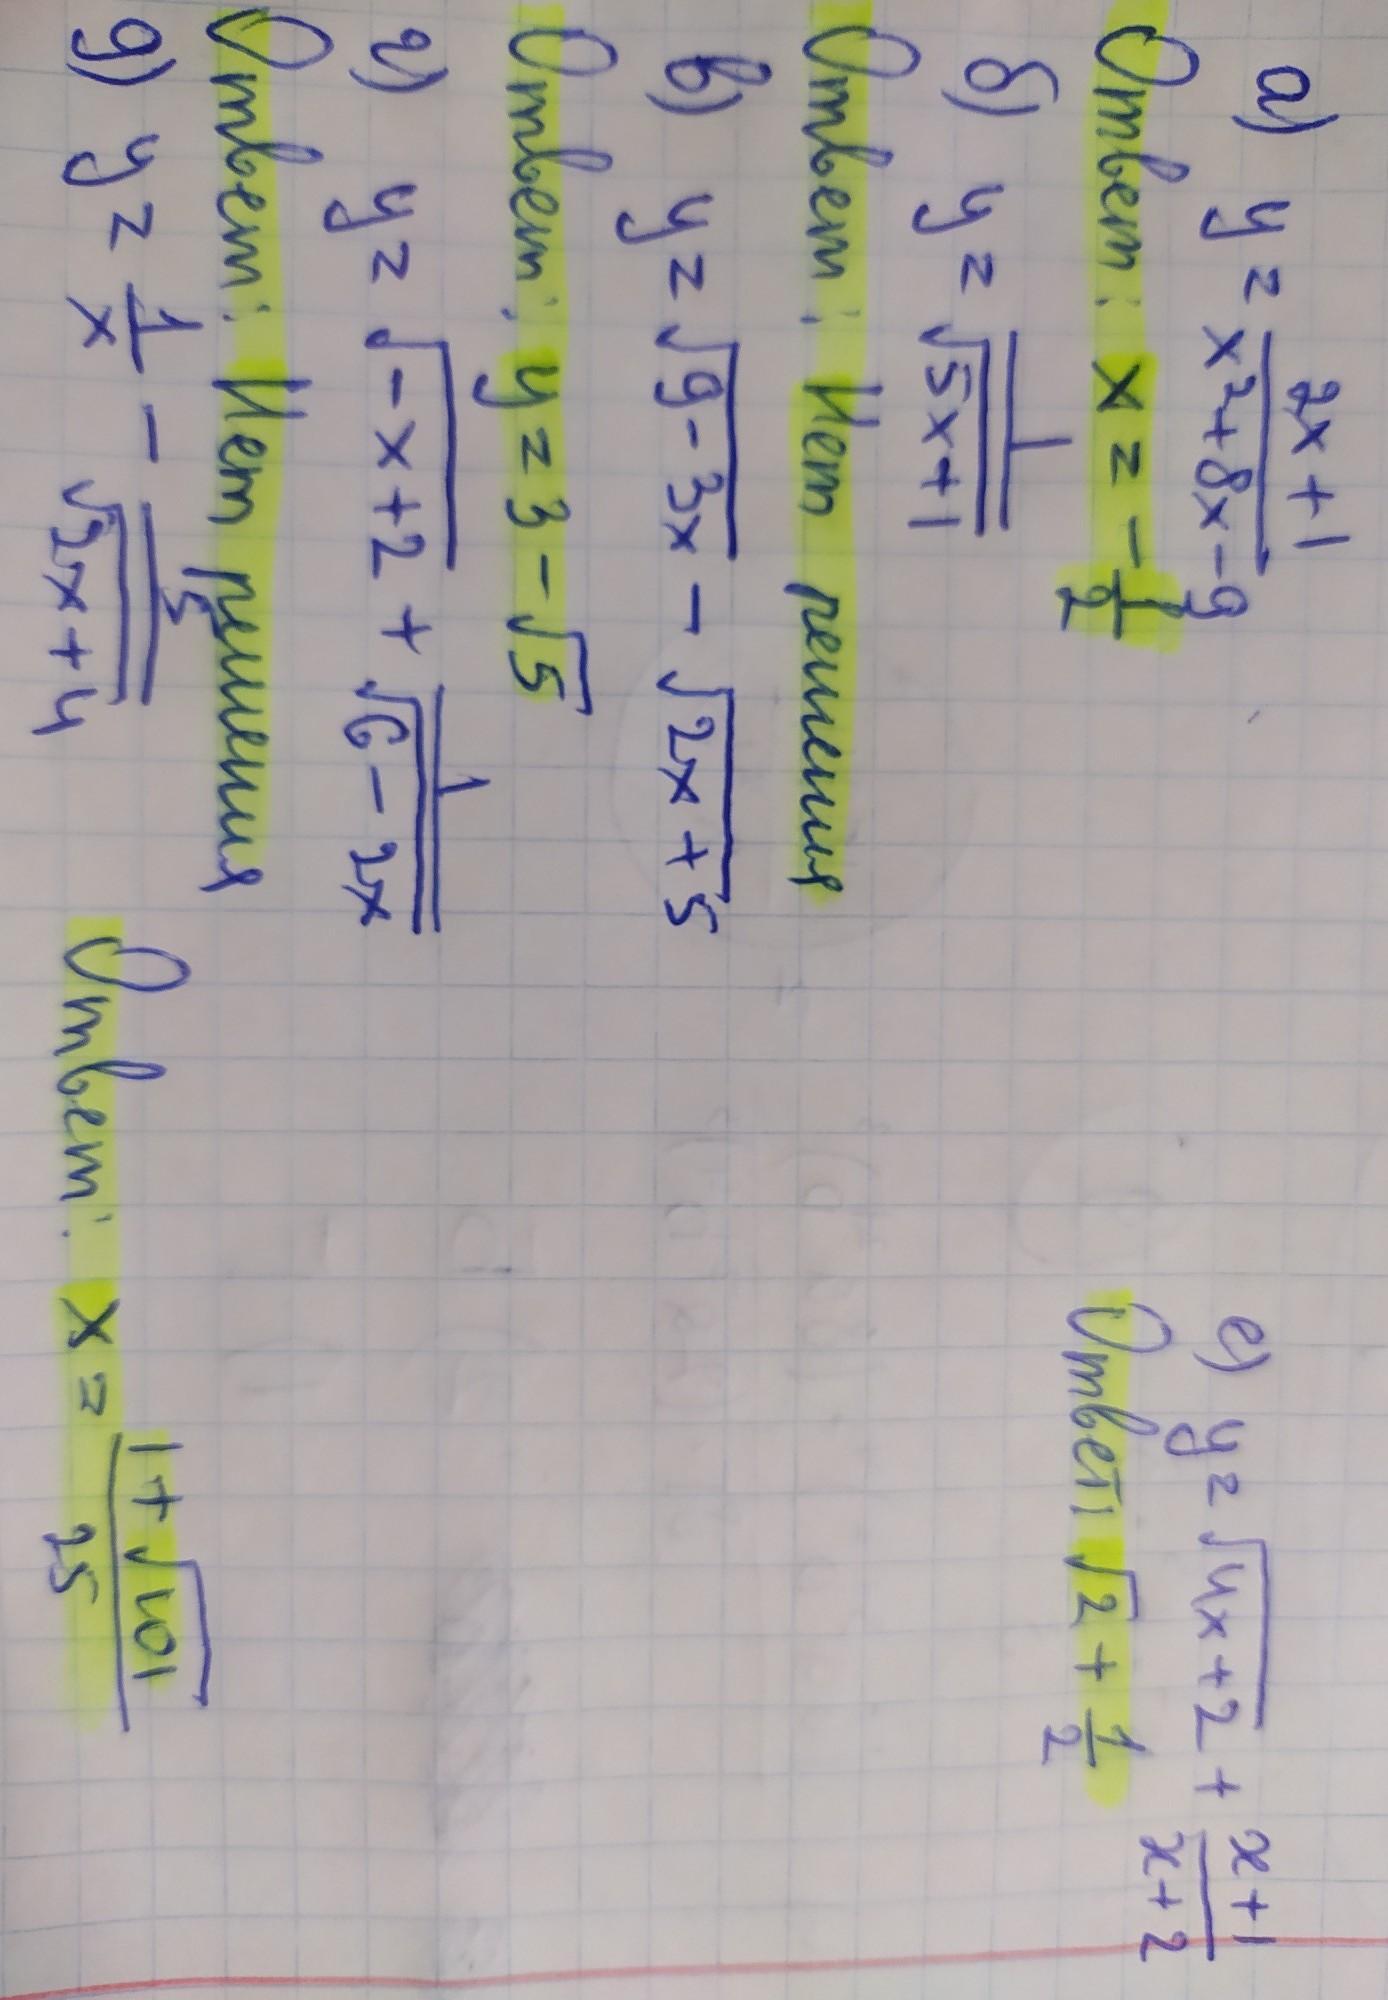 а) y = 2x+1 / x²+8x-9
Ответ: x = -1/2
б) y = 1 / √5x+1
Ответ: Нет решения
в) y = √9-3x - √2x+5
Ответ: y = 3-√5
г) y = √-x+2 + 1 / √6-2x
Ответ: Нет решения
д) y = 1/x - 5 / √2x+4
Ответ: x = 1+√101 / 25
е) y = √4x+2 + x+1 / x+2
Ответ: √2 + 1/2